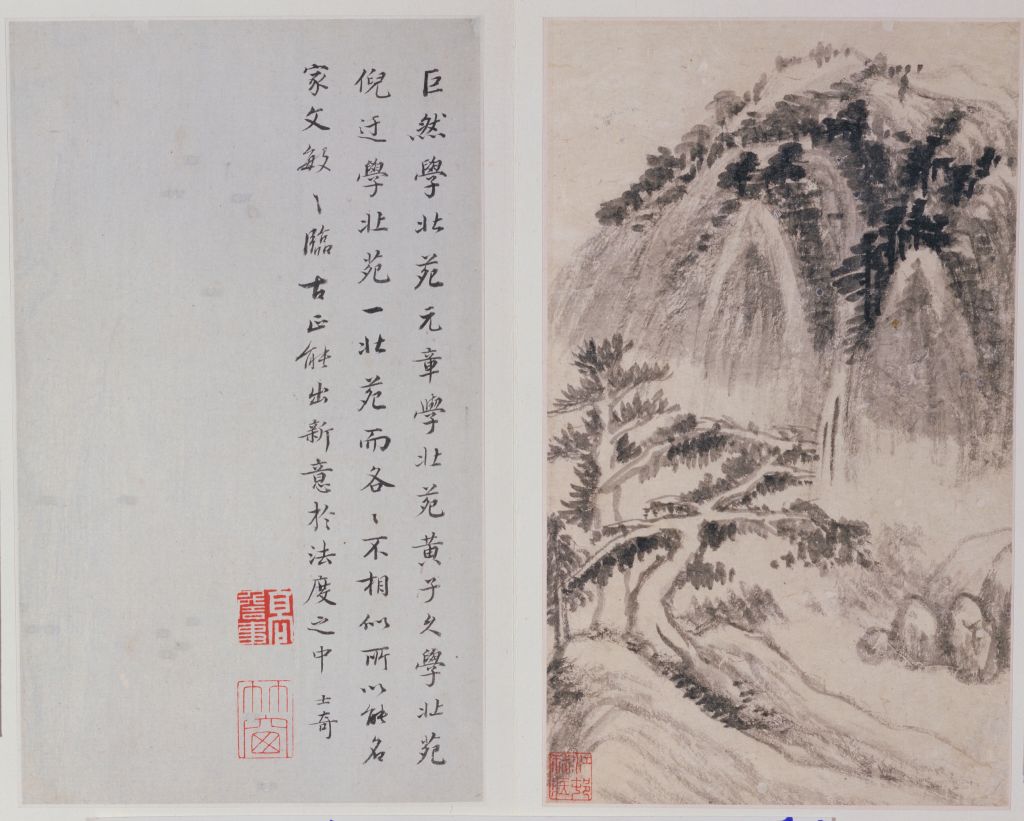 巨然學北苑元章學北苑黃子久學北苑
倪迂學北苑一北苑而各〻不相似所以能名
家文敏〻臨古正能出新意於法度之中 士奇